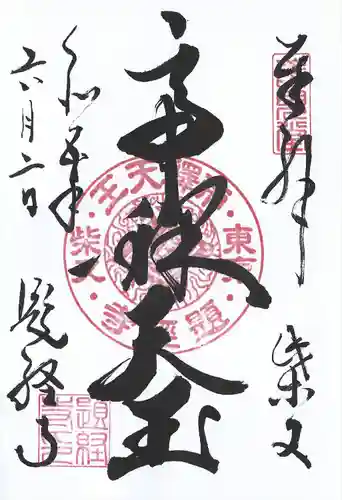 奉拝
柴又
帝釈天王
令和五年
六月二日
題経寺
帝釋天王
東京
題経寺
柴又
題経
寺印